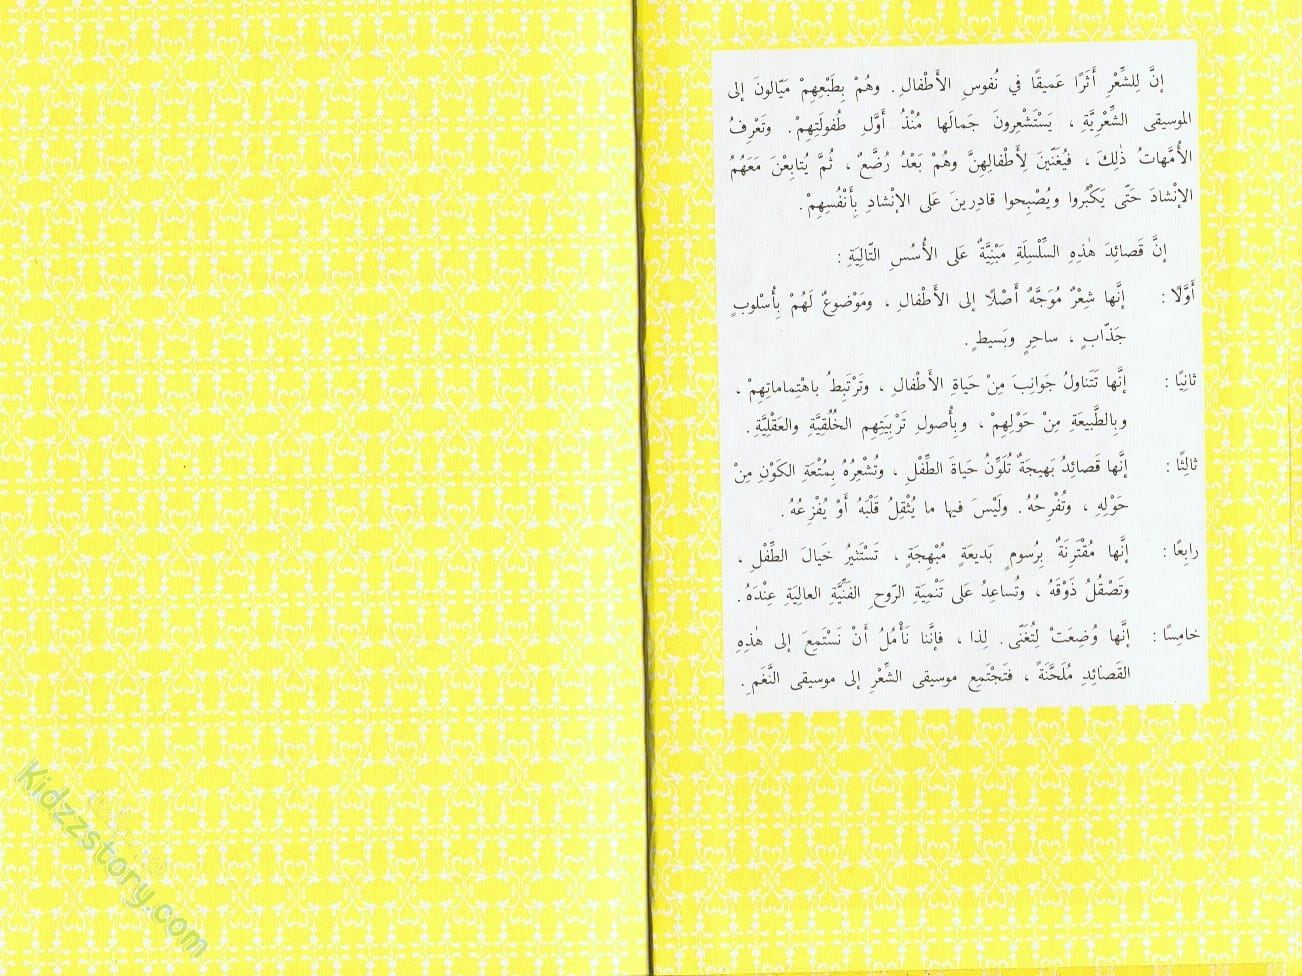 إنَّ لِلشِّعْرِ أَثَرًا عَميقًا في نُفوسِ الأَطْفالِ. وهُمْ بِطَبْعِهِمْ مَيّالونَ إلى
الموسيقى الشِّعْرِيَّةِ ، يَسْتَشْعِرونَ جَمالَها مُنْذُ أَوَّلِ طُفولَتِهِمْ. وتَعْرِفُ
الأُمَّهاتُ ذٰلِكَ ، فَيُغَنّينَ لِأَطْفالِهِنَّ وهُمْ بَعْدُ رُضَّعٌ ، ثُمَّ يُتابِعْنَ مَعَهُمُ
الإنْشادَ حَتّى يَكْبُروا ويُصْبِحوا قادِرينَ عَلى الإنْشادِ بِأَنْفُسِهِمْ.
إنَّ قَصائِدَ هٰذِهِ السِّلْسِلَةِ مَبْنِيَّةٌ عَلى الأُسُسِ التّالِيَةِ :
أَوَّلًا : إنَّها شِعْرٌ مُوَجَّهٌ أَصْلًا إلى الأَطْفالِ ، ومَوْضوعٌ لَهُمْ بِأُسْلوبٍ
جَذّابٍ ، ساحِرٍ وبَسيطٍ .
ثانِيًا : إنَّها تَتَناوَلُ جَوانِبَ مِنْ حَياةِ الأَطْفالِ ، وتَرْتَبِطُ باهْتِماماتِهِمْ ،
وبِالطَّبيعَةِ مِنْ حَوْلِهِمْ ، وبِأُصولِ تَرْبِيَتِهِم الخُلُقِيَّةِ والعَقْلِيَّةِ .
ثالِثًا : إنَّها قَصائِدُ بَهيجَةٌ تُلَوِّنُ حَياةَ الطِّفْلِ ، وتُشْعِرُهُ بِمُتْعَةِ الكَوْنِ مِنْ
حَوْلِهِ ، وتُفْرِحُهُ . ولَيْسَ فيها ما يُثْقِلُ قَلْبَهُ أَوْ يُفْزِعُهُ .
رابِعًا : إنَّها مُقْتَرِنَةٌ بِرُسومٍ بَديعَةٍ مُبْهِجَةٍ ، تَسْتَثيرُ خَيالَ الطِّفْلِ ،
وتَصْقُلُ ذَوْقَهُ ، وتُساعِدُ عَلى تَنْمِيَةِ الرّوحِ الفَنِّيَّةِ العالِيَةِ عِنْدَهُ .
خامِسًا : إنَّها وُضِعَتْ لِتُغَنّى . لِذا ، فإنَّنا نَأْمُلُ أَنْ نَسْتَمِعَ إلى هٰذِهِ
القَصائِدِ مُلَحَّنَةً ، فَتَجْتَمِع موسيقى الشِّعْرِ إلى موسيقى النَّغَمِ .
Kidzzstory.com